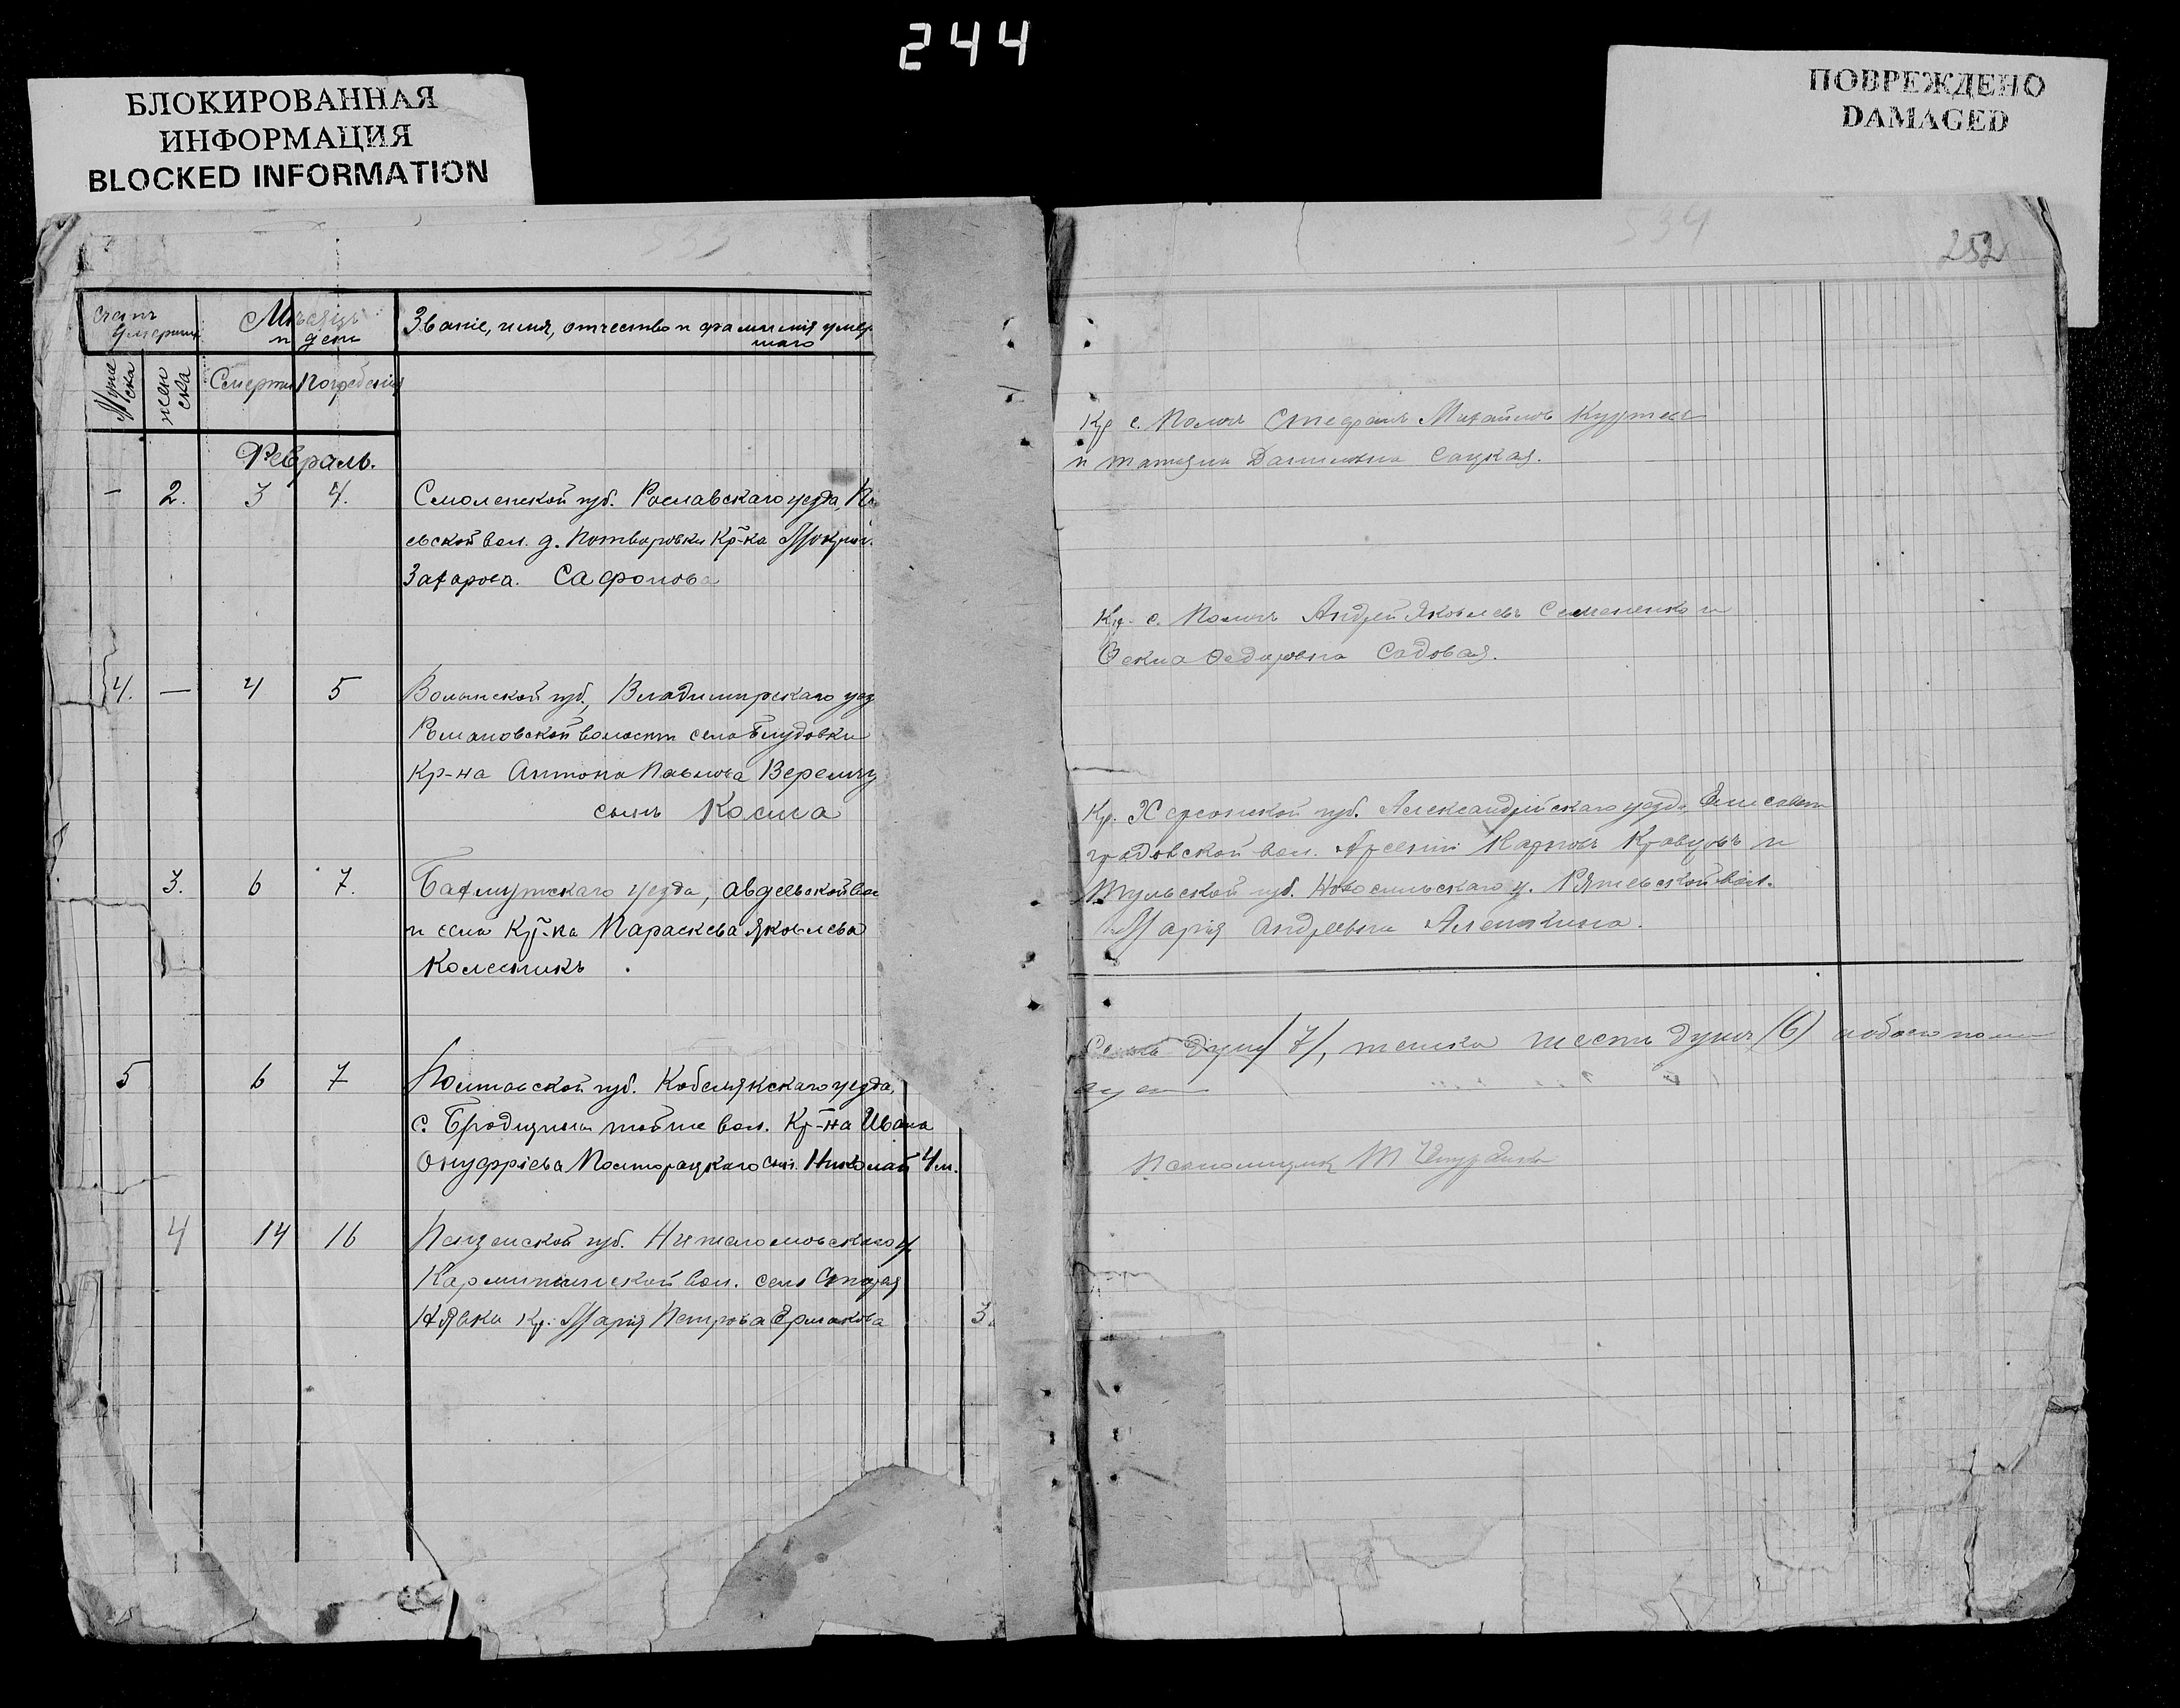 244
БЛОКИРОВАННАЯ
ИНФОРМАЦИЯ
BLOCKED INFORMATION
ПОВРЕЖДЕНО
DAMAGED
533
счетъ
умерших
Мѣсяцъ
и день
Званіе, имя, отчество и фамилія умер
шаго
Муже
ска
жен
ска
Смерти
Погребенія
Февраль.
— 2. 3 4. Смоленской губ. Рославскаго уезда,
евской вол. д. Кр-ка
Захарова. Сафонова
4. — 4 5 Волынской губ., Владимирскаго уез
Романовской волости села Блудовки
Кр-на Антона Павлова
сынъ Косма
3. 6 7. Бахмутскаго уезда, Авдеевской вол
и села Кр-ка Параскева Яковлева
Колесникъ
5 6 7 Полтавской губ. Кобелякскаго уезда,
с. тойже вол. Кр-на Ивана
Онуфріева Полторацкаго сын. Николай 4 м.
4 14 16 Пензенской губ. Нижеломовскаго у.
вол. село Старая
Кр. Марія Петрова Ермакова 3
534
252
Кр с. Пологъ Стефанъ Михайловъ
и Татіяна Даниловна Сацкая.
Кр. с. Пологъ Андрей Яковлевъ Семененко и
Ѳекла Ѳедоровна Садовая.
Кр. Херсонской губ. Александрійскаго уезда, Елисавет
градовской вол. Арсеній Карповъ Кравцовъ и
Тульской губ. Новосильскаго у. вол.
Марія Андреевна Алешкина.
душ /7/, женска шесть душъ /6/
Псаломщик